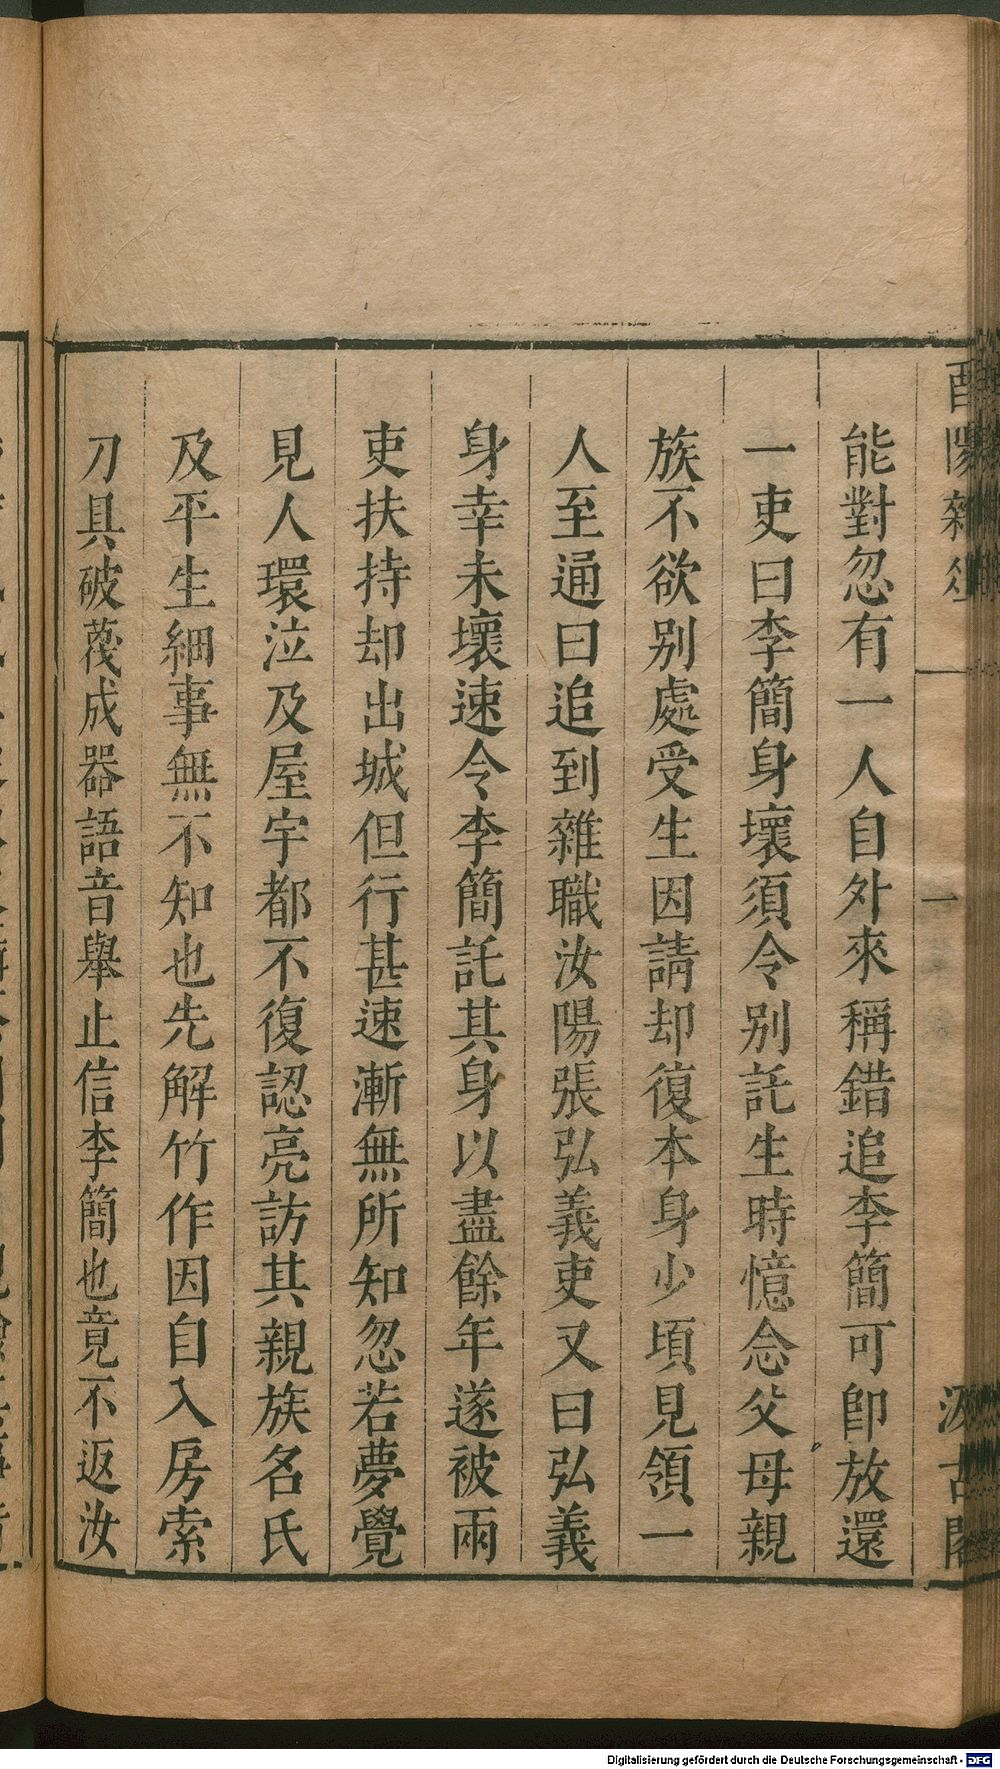 能對忽有一人自外來稱錯追李簡可即放還
一吏曰李簡身壞須令别託生時憶念父母親
族不欲别處受生因請却復本身少頃見領一
人至通曰追到雜職汝陽張弘義吏又曰弘義
身幸未壞速令李簡託其身以盡餘年遂被兩
吏扶持却出城但行甚速漸無所知忽若夢覺
見人環泣及屋宇都不復認亮訪其親族名氏
及平生細事無不知也先解竹作因自入房索
刀具破蔑成器語音舉止信李簡也竟不返汝
酉陽雜
一
汲古閣
Digitalisierung gefördert durch die Deutsche Forschungsgemeinschaft - DFG